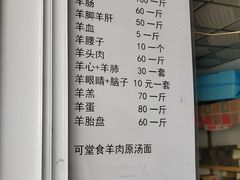 羊肠 100一斤
羊脚羊肝 60一斤
羊血 5一斤
羊腰子 10一个
羊头肉 60一斤
羊心+羊肺 30一套
羊眼睛+脑子 10元一套
羊羔 70一斤
羊蛋 80一斤
羊胎盘 60一斤
可堂食羊肉原汤面